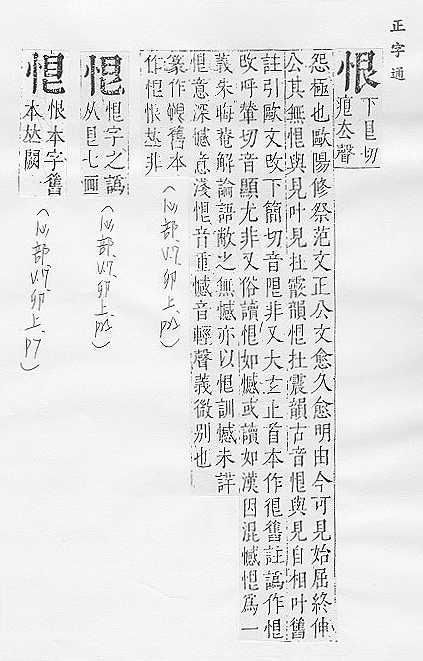 正字通
恨
下艮切
痕去聲
怨極也歐陽修祭范文正公文愈久愈明由今可見始屈終伸
公其無恨與見叶見在霰韻恨在震韻古音恨與見自相叶舊
註引歐文改下簡切音限非又大玄止首本作很舊註譌作恨
改呼輦切音顯尤非又俗讀恨如憾或讀如漢因混憾恨爲一
義朱晦菴解論語敝之無憾亦以恨訓憾未詳
恨意深憾意淺恨音重憾音輕聲義微别也
篆作舊本
作恨𠀤非
(心部.V.7.卯上.)
恨字之譌
从目七画
(心部.V.7.卯上.)
恨本字舊
本𠀤闕
(心部.V.7.卯上.p7)